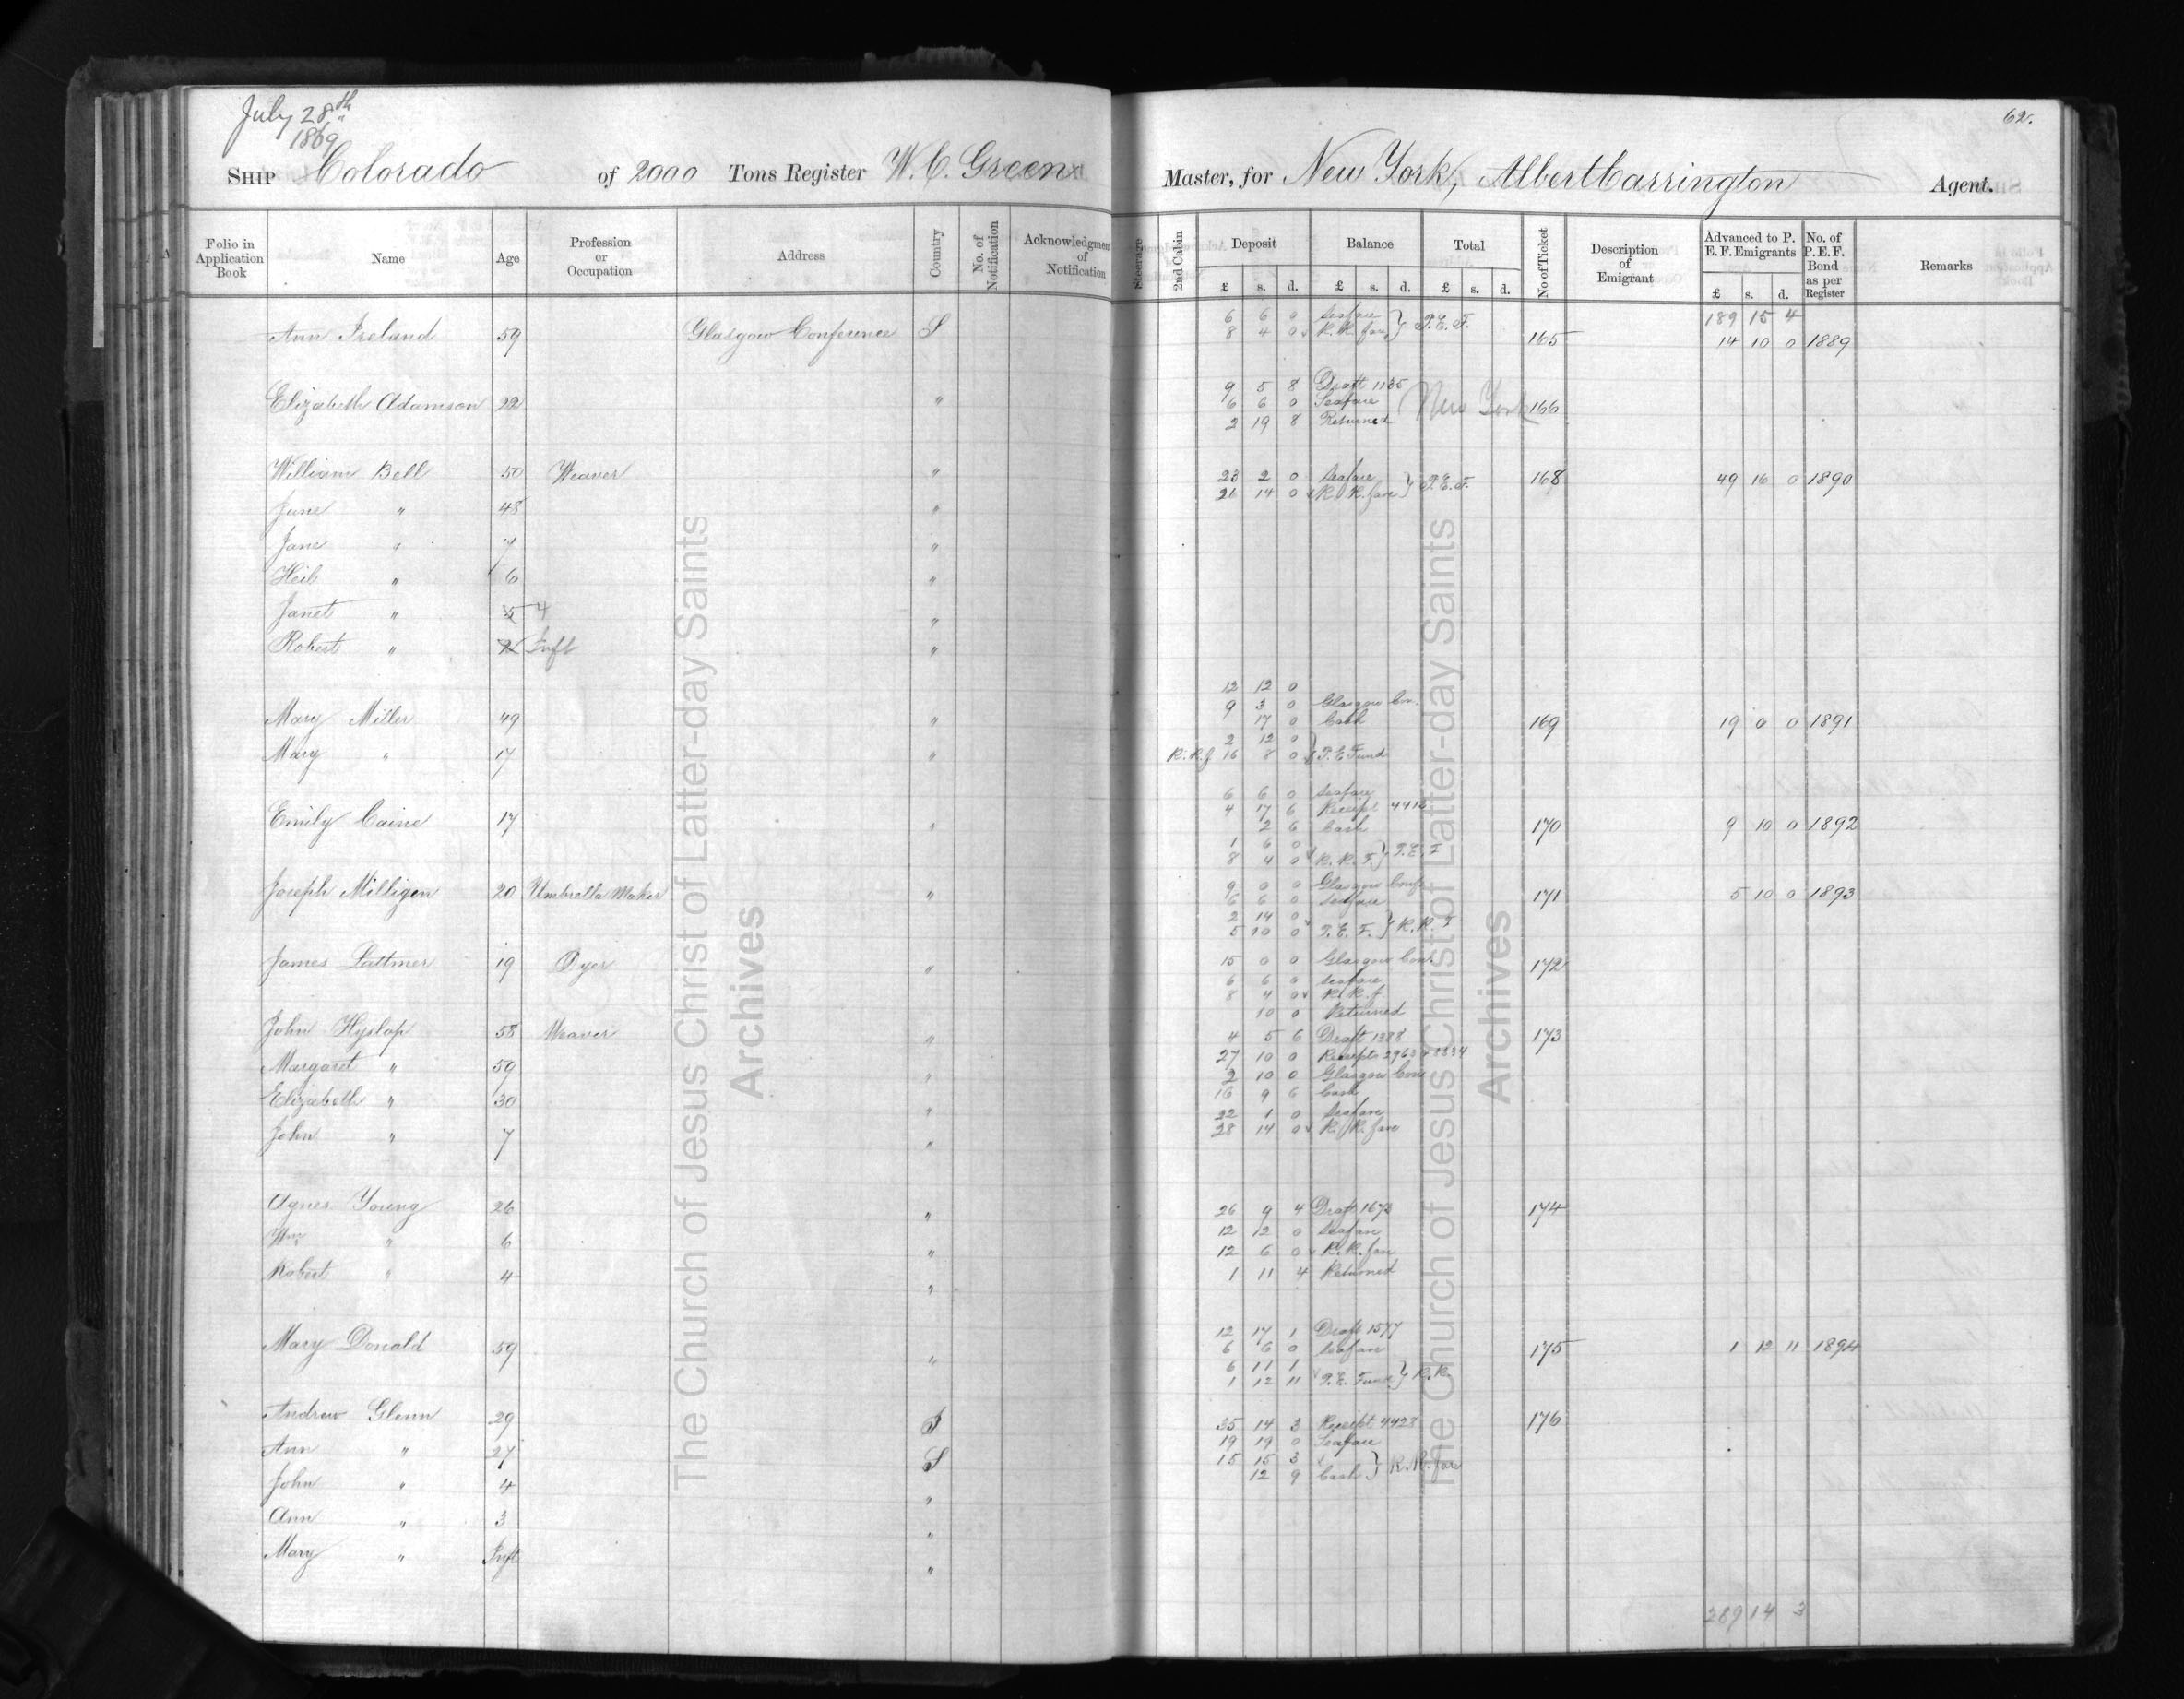 July 28th
1869
62.
SHIP Colorado of 2000 Tons Register W. C. Green Master, for New York, Albert Carrington Agent.
Folio in Application Book Name Age Profession or Occupation Address Country No. of Notification Acknowledgment of Notification Steerage 2nd Cabin Deposit Balance Total No of Ticket Description of Emigrant Advanced to P. E. F. Emigrants No. of P.E.F. Bond as per Register Remarks
£ s. d. £ s. d. £ s. d. £ s. d.
6 6 0 Seafare } P.E.F. 189 15 4
Ann Ireland 59 Glasgow Conference S 8 4 0 R. R. fare 165 14 10 0 1889
9 5 8 Draft 1135
Elizabeth Adamson 22 " 6 6 0 Seafare New York 166
2 19 8 Returned
William Bell 50 Weaver " 23 2 0 Seafare } P.E.F. 168 49 16 0 1890
26 14 0 R. R. fare
Jane " 48 "
Jane " 7 "
" 6 "
Janet " 5 4 "
Robert " 2 Inft "
12 12 0
9 3 0 Glasgow Con.
Mary Miller 49 " 17 0 Cash 169 19 0 0 1891
2 12 0
Mary " 17 " R.R.f 16 8 0 P. E Fund
6 6 0 Seafare
4 17 6 Receipt 4416
Emily Caine 17 " 2 6 Cash 170 9 10 0 1892
1 6 0
8 4 0 R. R. F. } P.E.F
9 0 0 Glasgow Conf.
Joseph Milligen 20 Umbrella Maker " 6 6 0 Seafare 171 5 10 0 1893
2 14 0
5 10 0 P. E. F. } R. R. F
James Lattmer 19 Dyer " 15 0 0 Glasgow Con. 172
6 6 0 Seafare
8 4 0 R. R. f.
10 0 Returned
John Hyslop 58 Weaver " 4 5 6 Draft 1388 173
27 10 0 Receipts 2963 + 3334
Margaret " 59 " 2 10 0 Glasgow Con
16 9 6 Cash
Elizabeth " 30 " 22 1 0 Seafare
28 14 0 R. R. fare
John " 7 "
Agnes Young 26 " 26 9 4 Draft 1673 174
12 12 0 Seafare
Wm " 6 " 12 6 0 R. R. fare
Robert " 4 " 1 11 4 Returned
12 17 1 Draft 1577
Mary Donald 59 " 6 6 0 Seafare 175 1 12 11 1894
6 11 1
1 12 11 P. E. Fund } R. R.
Andrew Glenn 29 35 14 3 Receipt 4423 176
19 19 0 Seafare
Ann " 27 S 15 15 3
12 9 Cash } R. R. fare
John " 4 "
Ann " 3 "
Mary " Inft "
289 14 3
The Church of Jesus Christ of Latter-day Saints
Archives
The Church of Jesus Christ of Latter-day Saints
Archives